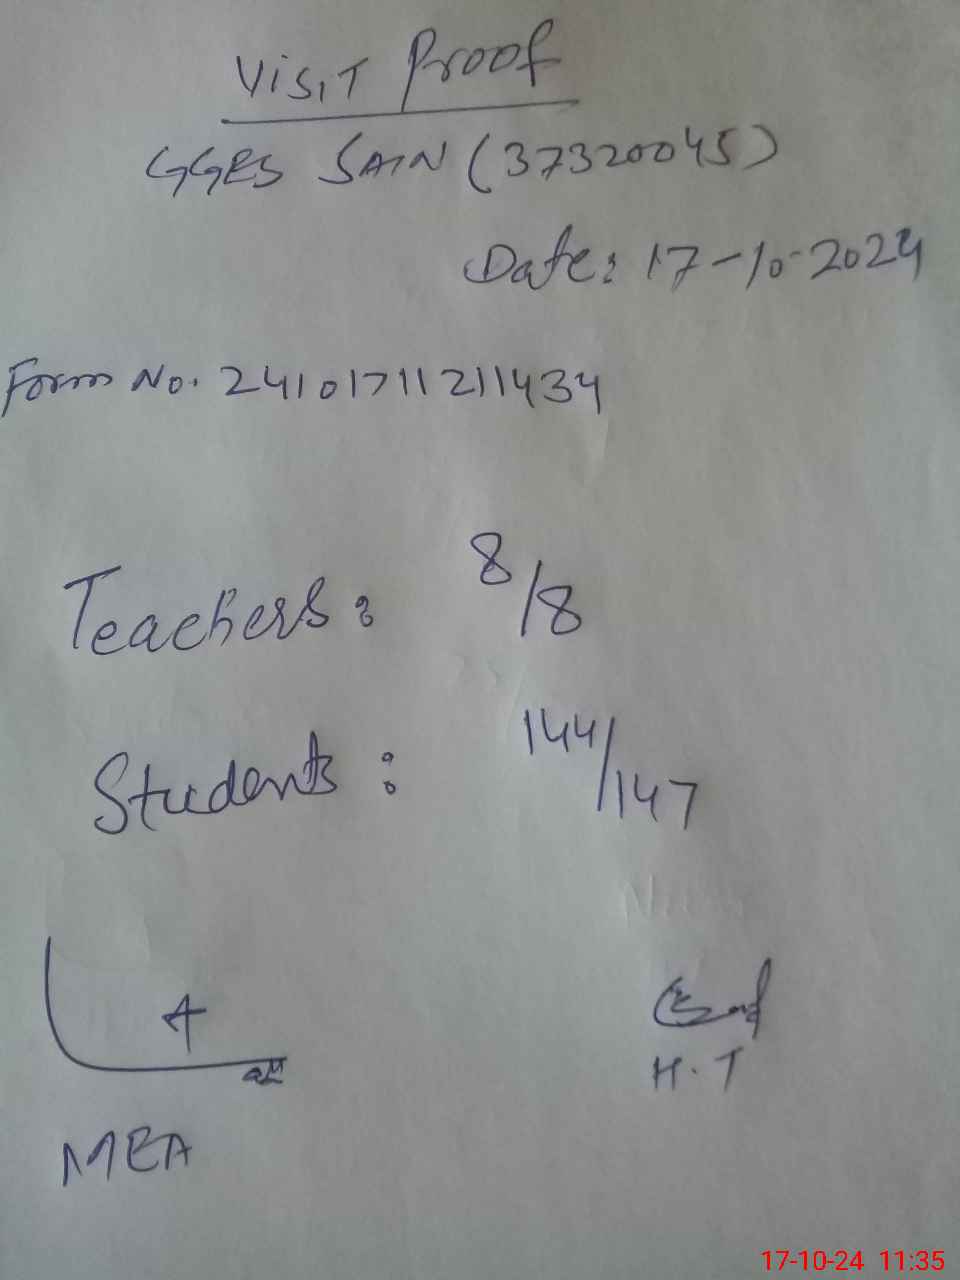 Visit Proof
GGES SAIN (37320045)
Date: 17-10-2024
Form No. 24101711211434
Teachers: 8/8
Students: 144/147
H.T
MEA
17-10-24 11:35